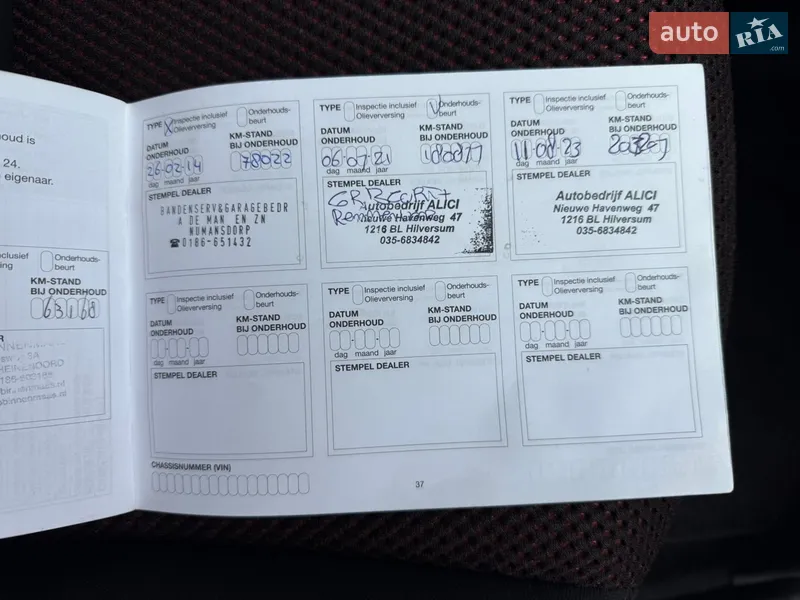 auto RIA .com
oud is
24.
eigenaar.
clusief
ing
Onderhouds-
beurt
KM-STAND
BIJ ONDERHOUD
63168
TYPE X Inspectie inclusief
Olieverversing
Onderhouds-
beurt
DATUM
ONDERHOUD
KM-STAND
BIJ ONDERHOUD
26-02-14
78022
dag maand jaar
STEMPEL DEALER
BANDENSERV&GARAGEBEDR
A DE MAN EN ZN
NUMANSDORP
☎0186-651432
TYPE Inspectie inclusief
Olieverversing
V Onderhouds-
beurt
DATUM
ONDERHOUD
KM-STAND
BIJ ONDERHOUD
06-07-21
dag maand jaar
STEMPEL DEALER
Autobedrijf ALICI
Nieuwe Havenweg 47
1216 BL Hilversum
035-6834842
TYPE Inspectie inclusief
Olieverversing
Onderhouds-
beurt
DATUM
ONDERHOUD
KM-STAND
BIJ ONDERHOUD
11-08-23
dag maand jaar
STEMPEL DEALER
Autobedrijf ALICI
Nieuwe Havenweg 47
1216 BL Hilversum
035-6834842
TYPE Inspectie inclusief
Olieverversing
Onderhouds-
beurt
DATUM
ONDERHOUD
KM-STAND
BIJ ONDERHOUD
dag maand jaar
STEMPEL DEALER
TYPE Inspectie inclusief
Olieverversing
Onderhouds-
beurt
DATUM
ONDERHOUD
KM-STAND
BIJ ONDERHOUD
dag maand jaar
STEMPEL DEALER
TYPE Inspectie inclusief
Olieverversing
Onderhouds-
beurt
DATUM
ONDERHOUD
KM-STAND
BIJ ONDERHOUD
dag maand jaar
STEMPEL DEALER
CHASSISNUMMER (VIN)
37